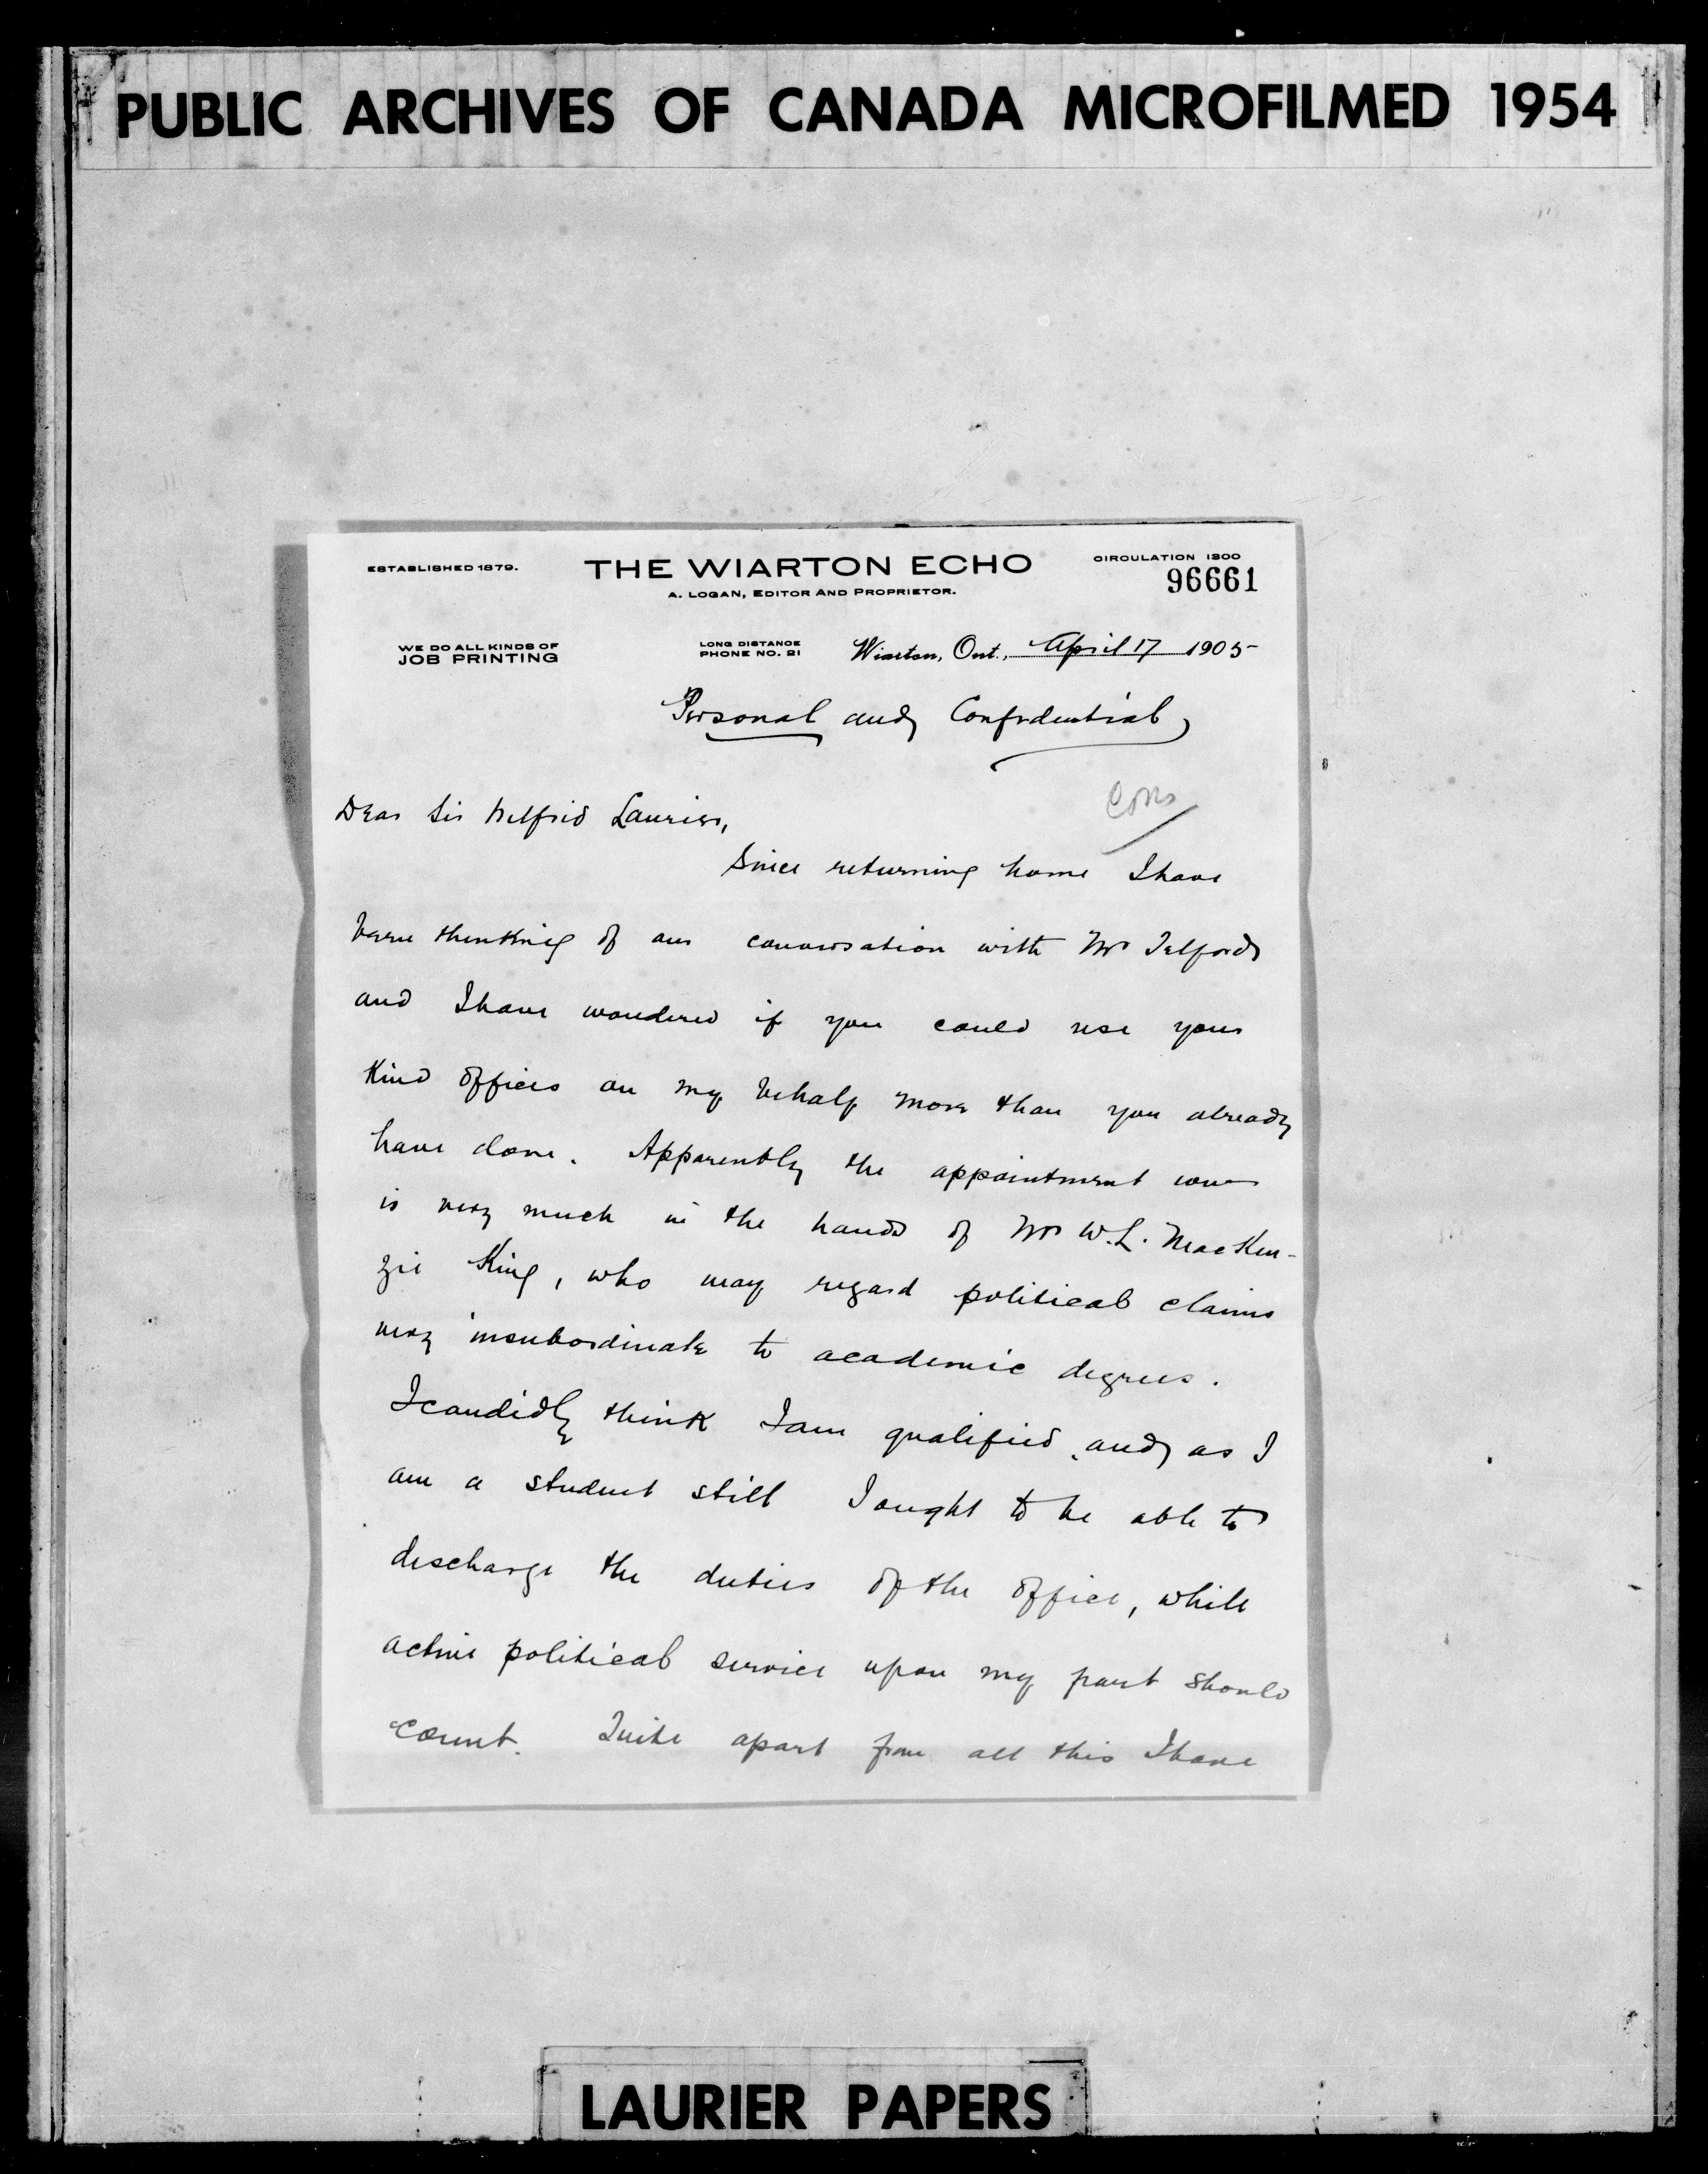 PUBLIC ARCHIVES OF CANADA MICROFILMED 1954
ESTABLISHED 1879.
THE WIARTON ECHO
CIRCULATION 1300
96661
A. LOGAN, EDITOR AND PROPRIETOR.
WE DO ALL KINDS OF
JOB PRINTING
LONG DISTANCE
PHONE NO. 21
Wiarton, Ont., April 17 1905
Personal and Confidential
Dear Sir Wilfrid Laurier,
Since returning home I have
been thinking of our conversation with Mr Telford
and I have wondered if you could use your
kind offices on my behalf more than you already
have done. Apparently the appointment
is very much in the hands of Mr W.L. MacKen-
zie King, who may regard political claims
very insubordinate to academic degrees.
I candidly think I am qualified, and as I
am a student still I ought to be able to
discharge the duties of the office, while
active political service upon my part should
count. Quite apart from all this I have
LAURIER PAPERS